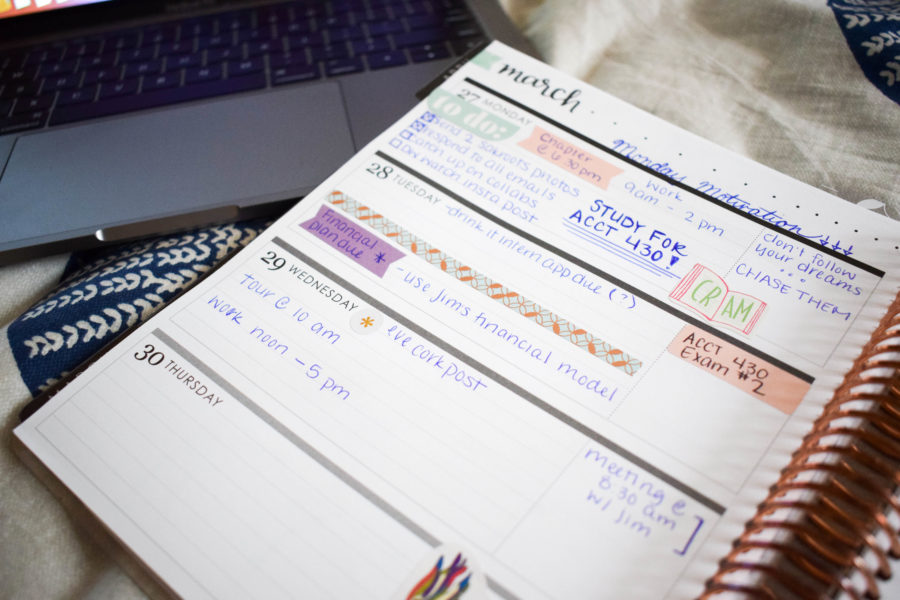 march
Monday Motivation ↓↓↓
27 MONDAY
to do:
send 2 sakroots photos
respond to all emails
catch up on collabs
DW march insta post
Chapter
@ 6:30 pm
work
9am - 2 pm
STUDY FOR
ACCT 430!
CRAM
don't follow
your dreams
CHASE THEM
28 TUESDAY
Financial
plan due *
drink it intern app due (?)
- use Jims financial model
ACCT 430
Exam #2
29 WEDNESDAY
Tour @ 10 am
work noon - 5 pm
* evecork post
meeting @
8:30 am
w/ Jim
30 THURSDAY